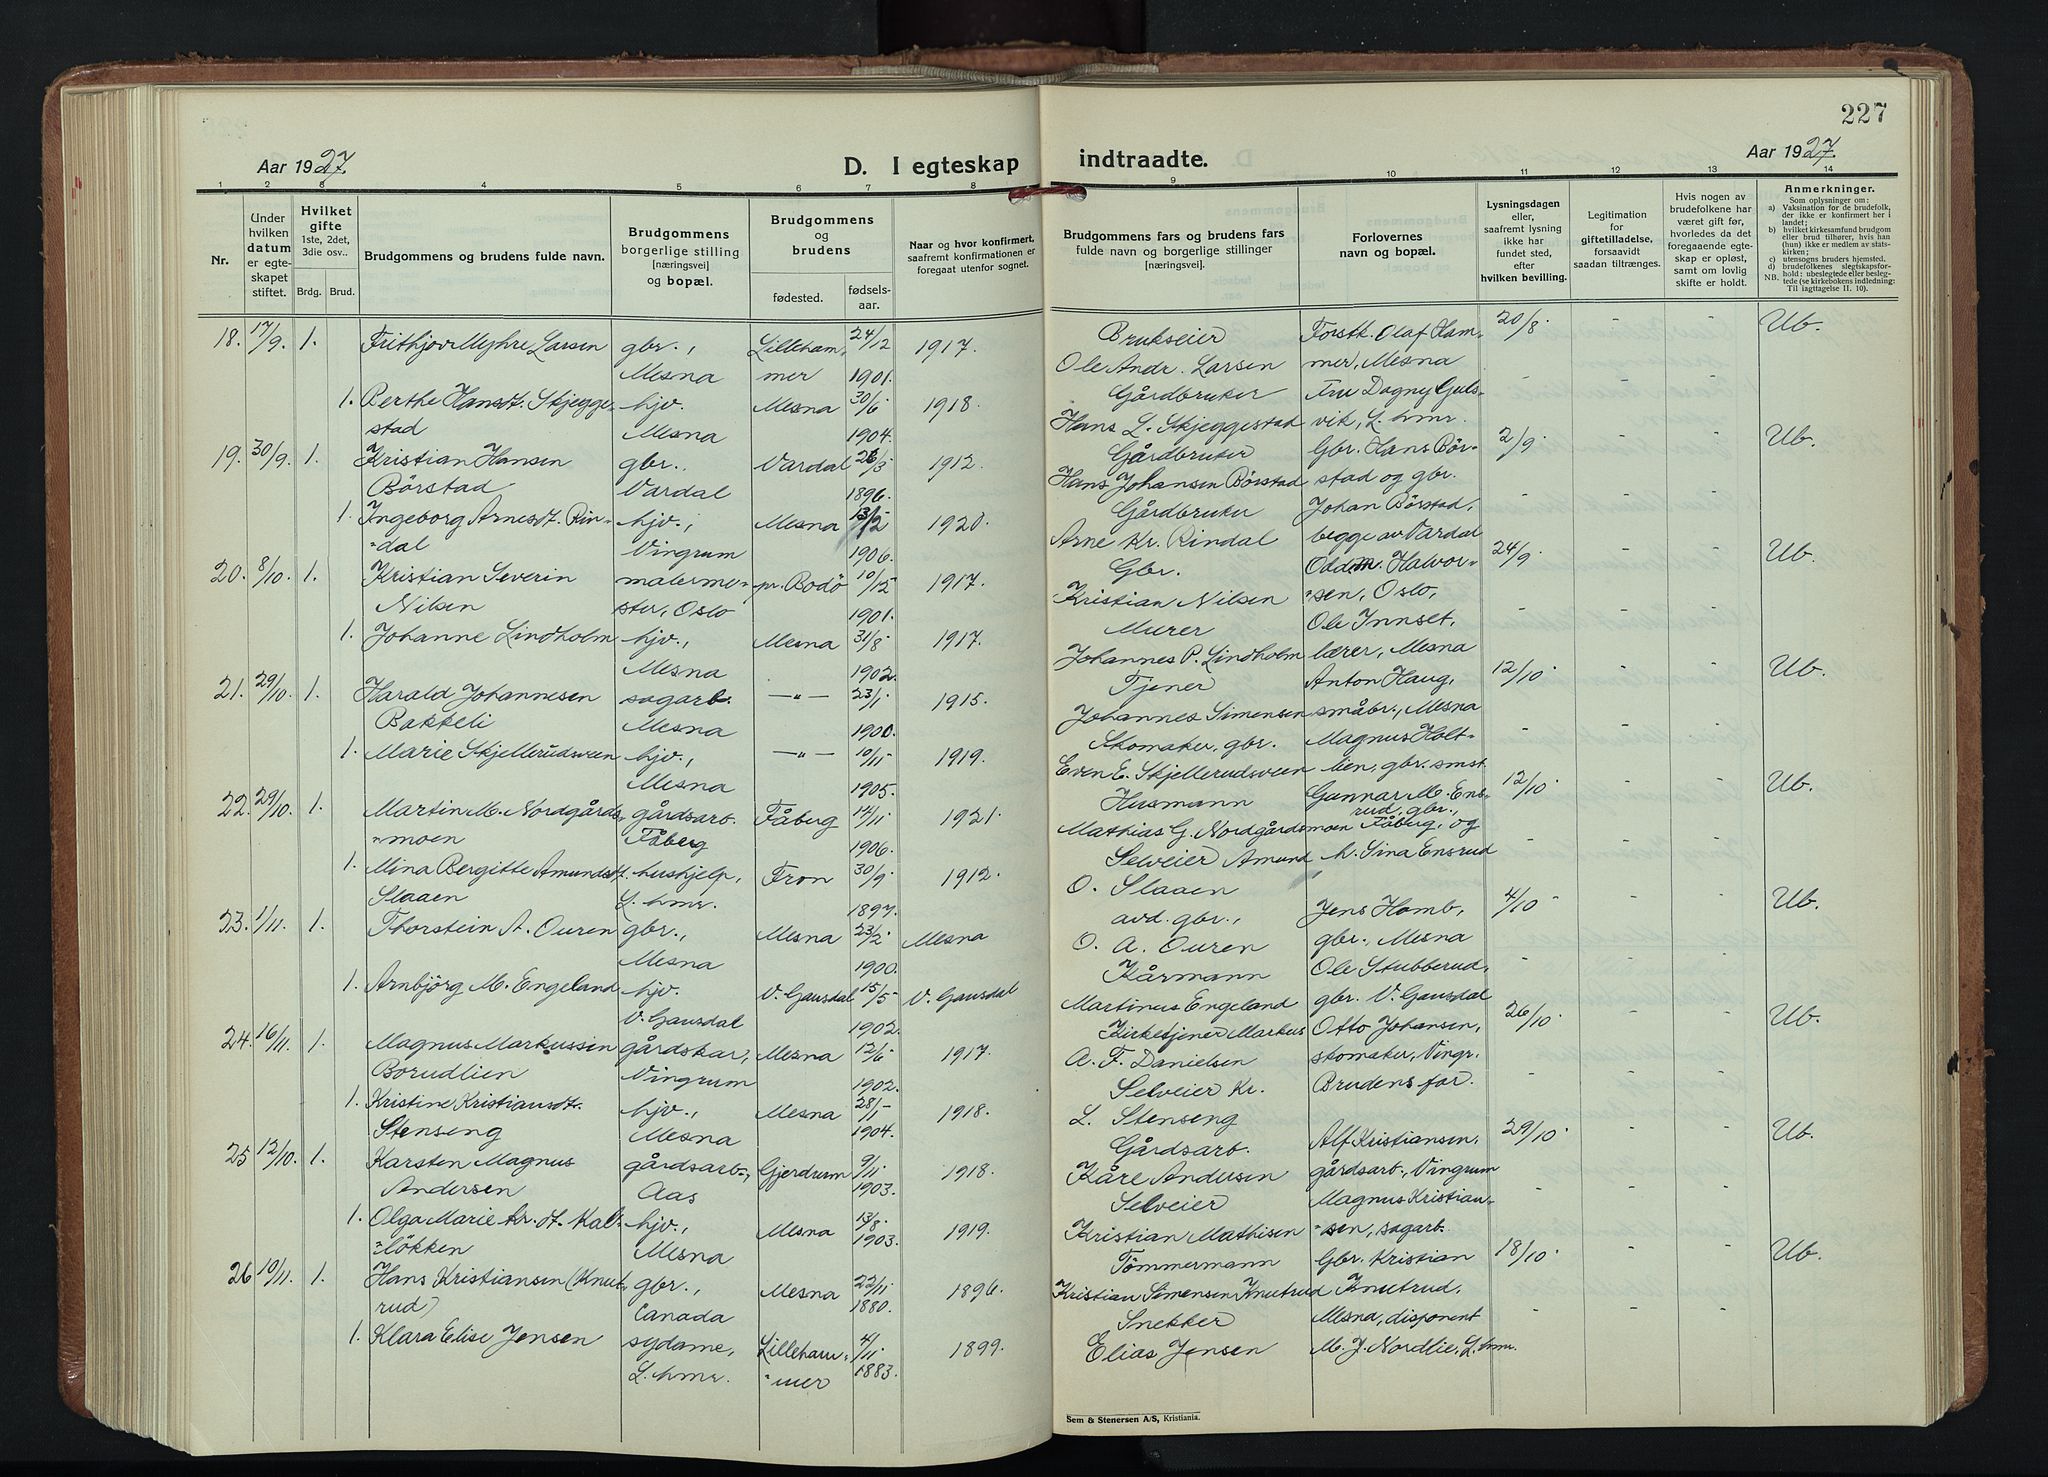 227
Aar 1927.
D. I egteskap
indtraadte.
Aar 1927.
1 2 3 4 5 6 7 8 9 10 11 12 13 14
Nr.
Under hvilken datum er egteskapet stiftet.
Hvilket gifte 1ste, 2det, 3die osv..
Brdg. Brud.
Brudgommens og brudens fulde navn.
Brudgommens borgerlige stilling [næringsvei] og bopæl.
Brudgommens og brudens
fødested.
fødselsaar.
Naar og hvor konfirmert, saafremt konfirmationen er foregaat utenfor sognet.
Brudgommens fars og brudens fars fulde navn og borgerlige stillinger [næringsvei].
Forlovernes navn og bopæl.
Lysningsdagen eller, saafremt lysning ikke har fundet sted, efter hvilken bevilling.
Legitimation for giftetilladelse, forsaavidt saadan tiltrænges.
Hvis nogen av brudefolkene har været gift før, hvorledes da det foregaaende egteskap er opløst, samt om lovlig skifte er holdt.
Anmerkninger.
Som oplysninger om:
a) Vaksination for de brudefolk, der ikke er konfirmert her i landet;
b) hvilket kirkesamfund brudgom eller brud tilhører, hvis han (hun) ikke er medlem av statskirken;
c) utensogns bruders hjemsted.
d) brudefolkenes slegtskapsforhold: ubeslegtede eller beslegtede (se kirkebokens indledning:
NB. Til iagttagelse II. 10).
18. 17/9. 1. Frithjov Myhre Larsen gbr., Lilleham- 24/12 1917. Brukseier Forstk. Olaf Ham- 20/8. - - Ub.
Mesna mer 1901. Ole Andr. Larsen mer, Mesna
1. Berthe Hansdt. Skjegge- hjv. Mesna 30/6 1918. Gårdbruker Fru Dagny Guls- - - -
stad Mesna 1904. Hans L. Skjeggestad vik, L.hmr.
19. 30/9. 1. Kristian Hansen gbr. Vardal 26/3 1912. Gårdbruker Gbr. Hans Bör- 2/9. - - Ub.
Börstad Vardal 1896. Hans Johansen Börstad stad og gbr.
1. Ingeborg Arnesdt. Rin- hjv., Mesna 13/2 1920. Gårdbruker Johan Börstad, - - -
dal Vingrum 1906. Arne Kr. Rindal begge av Vardal
20. 8/10. 1. Kristian Severin malerme- pr. Bodö 10/12 1917. Gbr. Oddm. Halvor- 24/9. - - Ub.
Nilsen ster, Oslo 1901. Kristian Nilsen sen, Oslo,
1. Johanne Lindholm hjv., Mesna 31/8 1917. Murer Ole Innset, - - -
Mesna 1902. Johannes P. Lindholm lærer, Mesna
21. 29/10. 1. Harald Johannesen sagarb. -"- 23/1 1915. Tjener Anton Haug, 12/10. - - Ub.
Bakkeli Mesna 1900. Johannes Simensen småbr., Mesna
1. Marie Skjellerudsveen hjv., -"- 10/11 1919. Skomaker, gbr. Magnus Holt- - - -
Mesna 1905. Even E. Skjellerudsveen lien, gbr. smst.
22. 29/10. 1. Martin M. Nordgårds- gårdsarb. Fåberg 14/11 1921. Husmann Gunnar M. Ens- 12/10. - - Ub.
rud, gbr.,
moen Fåberg 1906. Mathias G. Nordgårdsmoen Fåberg, og
1. Mina Bergitte Amundsdt. hushjelp, Fron 30/9 1912. Selveier Amund h. Sina Ensrud - - -
Slaaen L.hmr. 1897. O. Slaaen
23. 1/11. 1. Thorstein A. Ouren gbr., Mesna 23/2 Mesna avd. gbr., Jens Homb, 4/10. - - Ub.
Mesna 1900. O. A. Ouren gbr., Mesna
1. Arnbjörg M. Engeland hjv. V. Gausdal 15/5 V. Gausdal Kårmann Ole Stubberud, - - -
V. Gausdal 1902. Martinus Engeland gbr. V. Gausdal
24. 16/11. 1. Magnus Markussen gårdskar, Mesna 12/6 1917. Kirketjener Markus Otto Johansen, 26/10. - - Ub.
Borudlien Vingrum 1902. A. F. Danielsen skomaker, Vingr.
1. Kristine Kristiansdt. hjv., Mesna 28/1 1918. Selveier Kr. Brudens far. - - -
Stenseng Mesna 1904. L. Stenseng
25 12/10. 1. Karsten Magnus gårdsarb., Gjerdrum 9/11 1918. Gårdsarb. Alf Kristiansen, 29/10. - - Ub.
Andersen Aas 1903. Kåre Andersen gårdsarb., Vingrum
1. Olga Marie Kr.dt. Kal- hjv., Mesna 13/8 1919. Selveier Magnus Kristian- - - -
lökken Mesna 1903. Kristian Mathisen sen, sagarb.
26 10/11. 1. Hans Kristiansen (Knut- gbr., Mesna 22/11 1896. Tömmermann Gbr. Kristian 18/10. - - Ub.
rud) Canada 1880. Kristian Simensen Knutrud Knutrud,
1. Klara Elise Jensen sydame, Lilleham- 4/11 1899. Snekker Mesna, disponent - - -
L.hmr. mer 1883. Elias Jensen M. J. Nordlie, L.hmr.
Sem & Stenersen A/S, Kristiania.